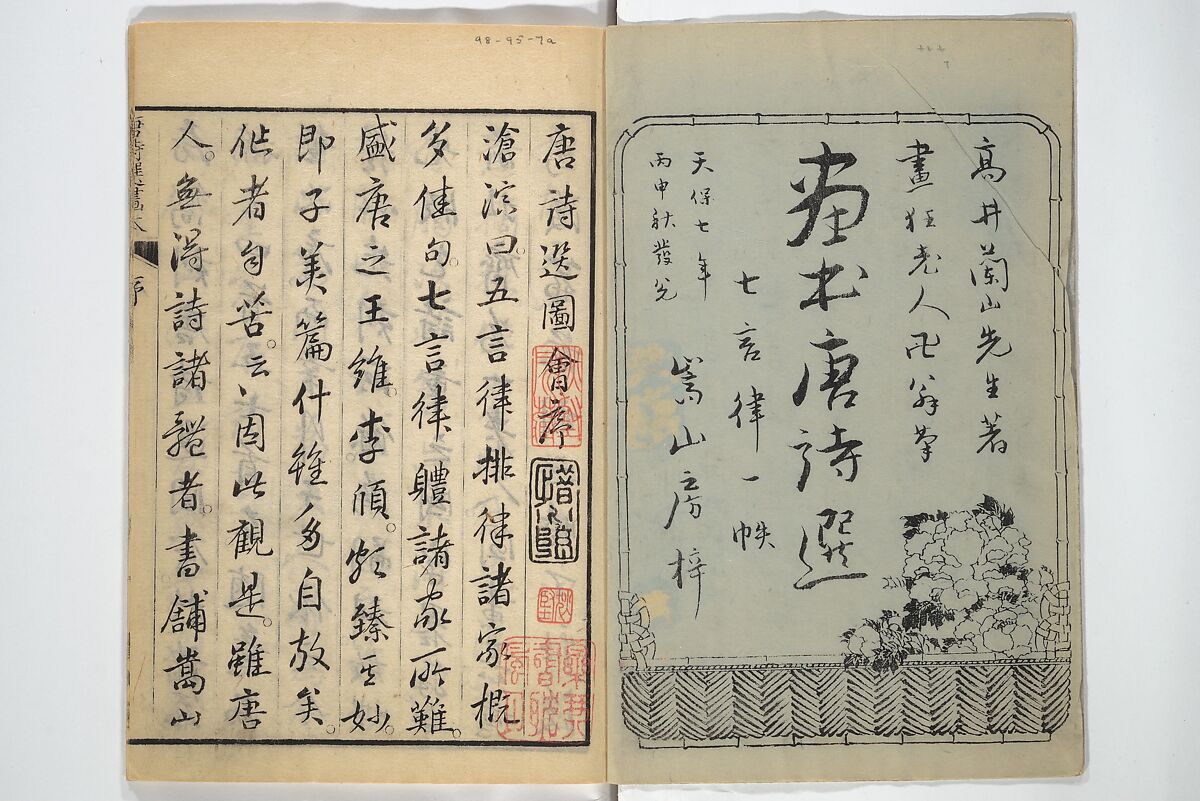 高井蘭山先生著
畫狂老人卍翁筆
画本唐詩選
七言律一帙
嵩山房梓
天保七年
丙申秋發兌
98-95-7a
唐詩選圖會序
滄溟曰。五言律排律諸家概
多佳句。七言律體諸家所難。
盛唐之王維。李頎。頗臻其妙。
即子美篇什雖多自放矣。
作者自苦。云云因此觀是。雖唐
人。無得詩諸體者。書舖嵩山
唐詩選畫本
序